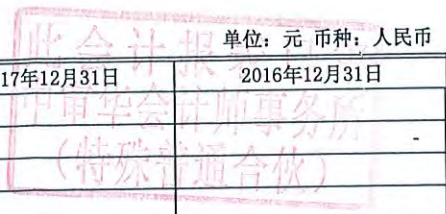 单位：元 币种：人民币
此会计报表
17年12月31日
2016年12月31日
中审华会计师事务所
-
（特殊普通合伙）